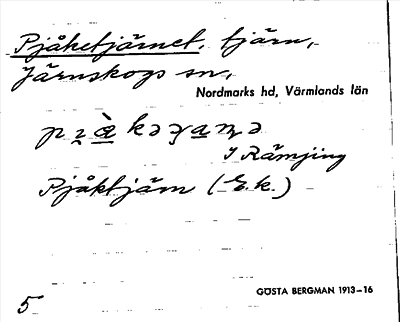 Pjåketjärnet, tjärn,
Järnskogs sn,
Nordmarks hd, Värmlands län
I Rämjing
Pjåktjärn (E.k.)
GÖSTA BERGMAN 1913-16
5